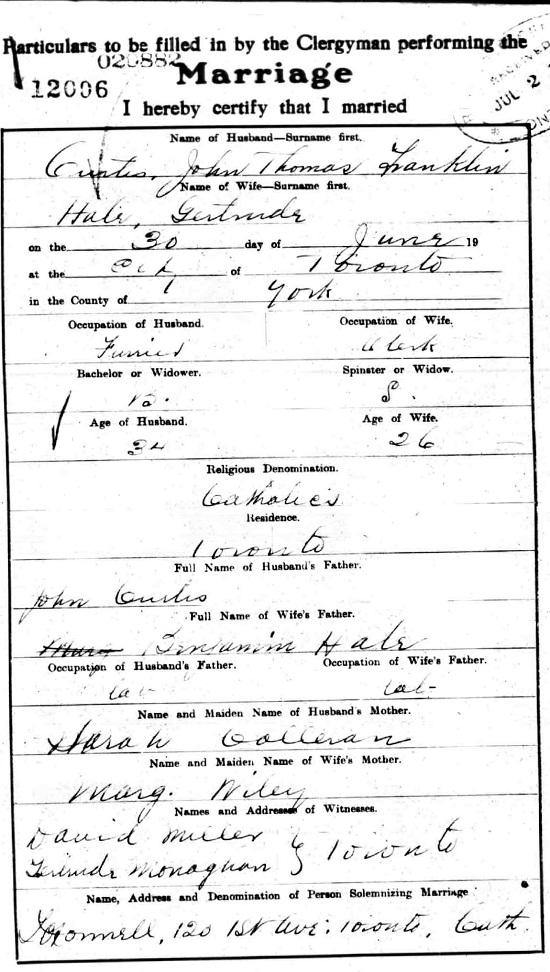 Particulars to be filled in by the Clergyman performing the
020882
Marriage
12006
JUL 2
I hereby certify that I married
Name of Husband—Surname first.
Curtis, John Thomas Franklin
Name of Wife—Surname first.
Hale, Gertrude
on the 30 day of June 19
at the of Toronto
in the County of York
Occupation of Husband. Occupation of Wife.
Furrier Clerk
Bachelor or Widower. Spinster or Widow.
B. S.
Age of Husband. Age of Wife.
34 26
Religious Denomination.
Catholics
Residence.
Toronto
Full Name of Husband's Father.
John Curtis
Full Name of Wife's Father.
Benjamin Hale
Occupation of Husband's Father. Occupation of Wife's Father.
Lab- Lab-
Name and Maiden Name of Husband's Mother.
Sarah Colleran
Name and Maiden Name of Wife's Mother.
Marg. Wiley
Names and Addresses of Witnesses.
David Miller
Gertrude Monaghan } Toronto
Name, Address and Denomination of Person Solemnizing Marriage
120 1st Ave. Toronto, Cath.